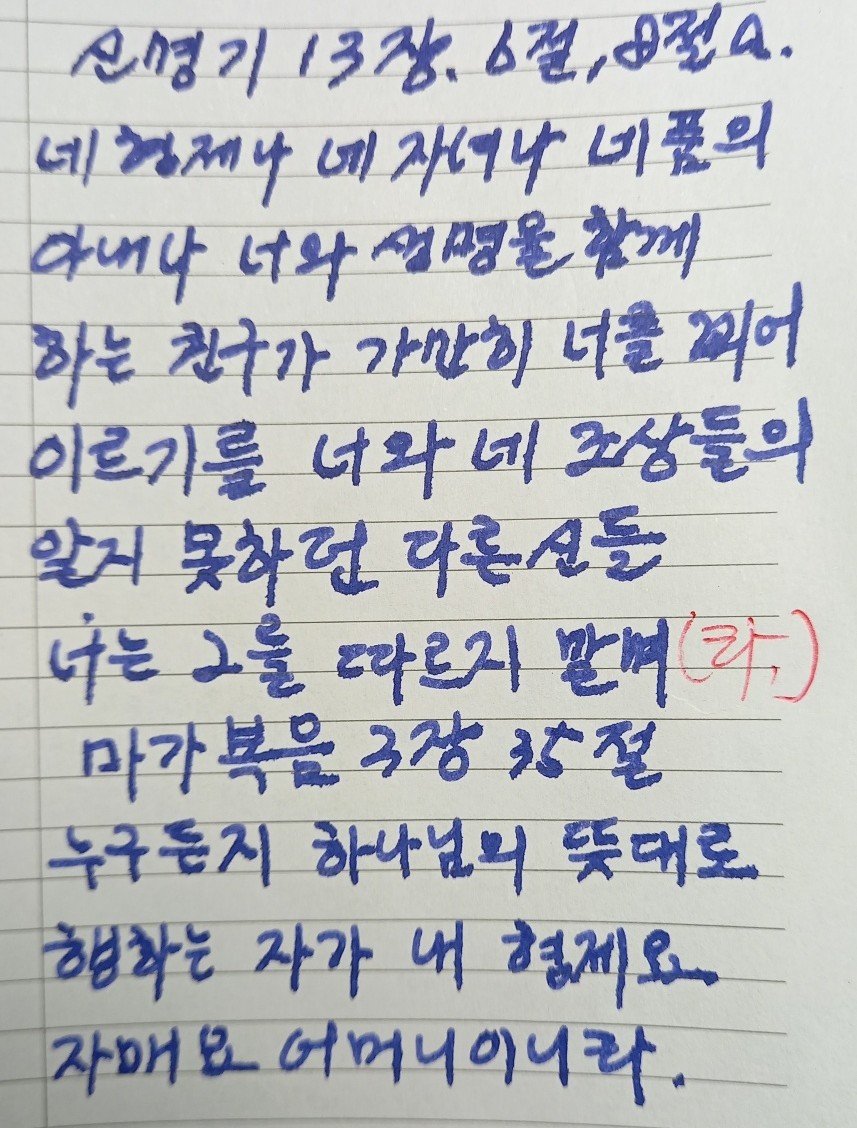 신명기 13장. 6절, 8절a.
네 형제나 네 자녀나 네 품의
아내나 너와 생명을 함께
하는 친구가 가만히 너를 꾀어
이르기를 너와 네 조상들의
알지 못하던 다른 신들
너는 그를 따르지 말며(라,)
마가복음 3장 35절
누구든지 하나님의 뜻대로
행하는 자가 내 형제요
자매요 어머니이니라.